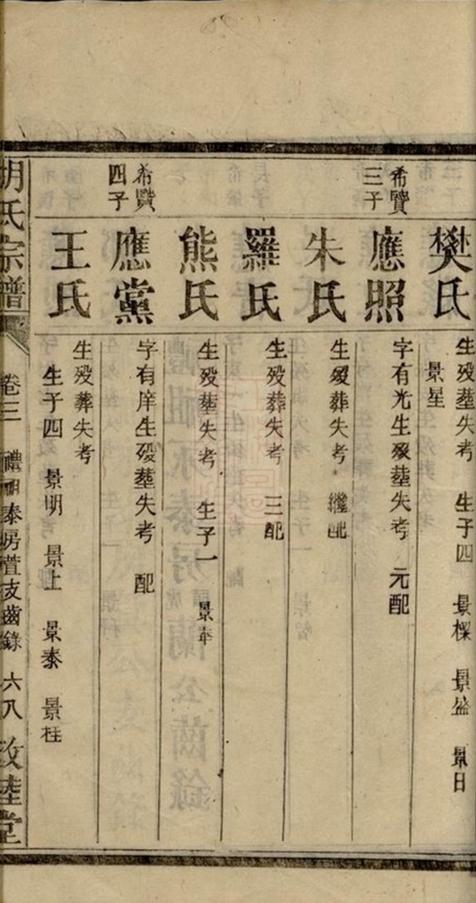 樊氏
生殁塟失考 生子四 景櫟 景盛 景日
景星
希賢三子
應照
字有光生殁塟失考 元配
朱氏
生殁葬失考 繼配
羅氏
生殁葬失考 三配
熊氏
生殁塟失考 生子一 景奉
希賢四子
應黨
字有庠生殁塟失考 配
王氏
生殁葬失考
生子四 景明 景上 景泰 景柱
胡氏宗譜 卷三 禮 泰房萱支齒錄 六八 敦睦堂